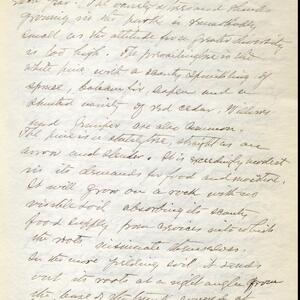 The variety of trees and shrubs
growing in the park is remarkably
small as the altitude for a greater diversity
is too high. The prevailing tree is the
white pine with a scanty sprinkling of
spruce, balsam fir, aspen and a
stunted variety of red cedar. Willows
and juniper are also common.
The pine is a stately tree, straight as an
arrow and slender. It is exceedingly modest
in its demands for food and moisture.
It will grow on a rock with no
visible soil absorbing its scanty
food supply from crevices into which
the roots insinuate themselves.
In the more yielding soil, it sends
out its roots at a right angle from
the base of the trunk